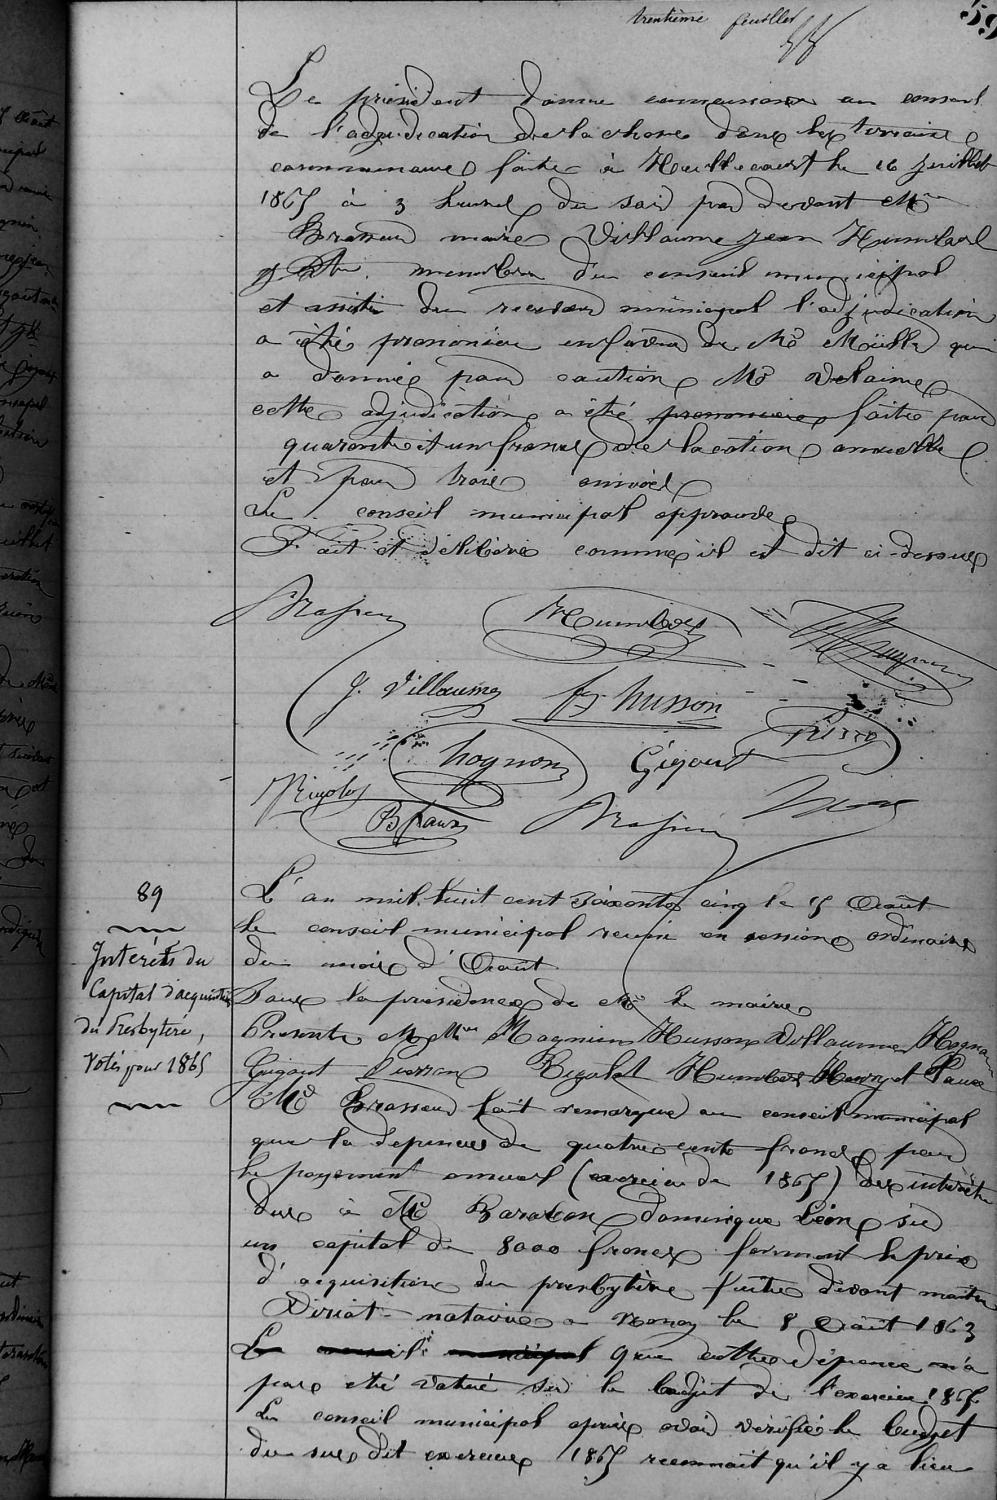 trentième feuillet
59
Le président donne connaissance au conseil
de l'adjudication de la chasse dans les terrains
communaux faite à Heillecourt le 16 juillet
1865 à 3 heures du soir par devant Mr
Brasseur maire Villaume Jean Humbert
membres du conseil municipal
et assisté du receveur municipal l'adjudication
a été prononcée en faveur de Mr Müller qui
a donné pour caution Mr Delaine
cette adjudication a été prononcée faite pour
quarante et un francs de location annuelle
et pour trois années
Le conseil municipal approuve
Fait et délibéré comme il est dit ci-dessus
Brasseur Humbert Magnien
J. Villaume husson Pierron
hognon Gigout
Rigolot
Brasseur
89
Intérêts du
Capital d'acquisition
du Presbytère,
Votés pour 1865
L'an mil huit cent soixante cinq le 15 Aout
Le conseil municipal reuni en session ordinaire
du mois d'Aout
Sous la présidence de Mr le maire
Présents M Mrs Magnien Husson Villaume Hognon
Gigout Pierron Rigolot Humbert Henry et
Mr Brasseur fait remarquer au conseil municipal
que la depense de quatre cents francs pour
le payement annuel (exercice de 1865) des intérêts
dus à Mr dominique Léon sur
un capital de 8000 francs formant le prix
d'acquisition du presbytère faite devant maître
notaire a Nancy le 8 Août 1863
Le conseil municipal que cette dépense n'a
pas eté sur le budjet de l'exercice 1865
Le conseil municipal après avoir vérifié le budget
du sus dit exercice 1865 reconnait qu'il y a lieu